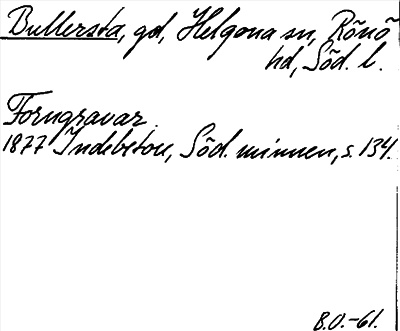 Bullersta, gd, Helgona sn, Rönö
hd, Söd. l.
Forngravar.
1877 Indebetou, Söd. minnen, s. 134.
B.O.-61.